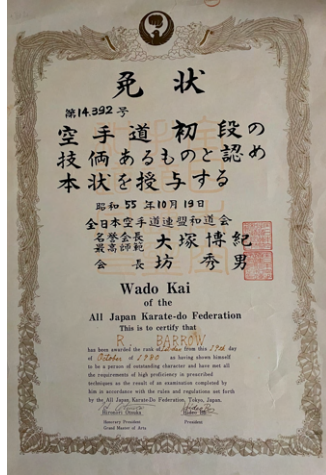 免状
第14,392号
空手道初段の
技倆あるものと認め
本状を授与する
昭和55年10月19日
全日本空手道連盟和道会
名誉会長
最高師範 大塚博紀
会長 坊秀男
Wado Kai
of the
All Japan Karate-do Federation
This is to certify that
R BARROW
has been awarded the rank shodan from this 19th day
of October of 1980 as having shown himself
to be a person of outstanding character and have met all
the requirements of high proficiency in prescribed
techniques as the result of an examination completed by
him in accordance with the rules and regulations set forth
by the All Japan Karate-Do Federation, Tokyo, Japan.
Hironori Ohtsuka
Honorary President President
Grand Master of Arts